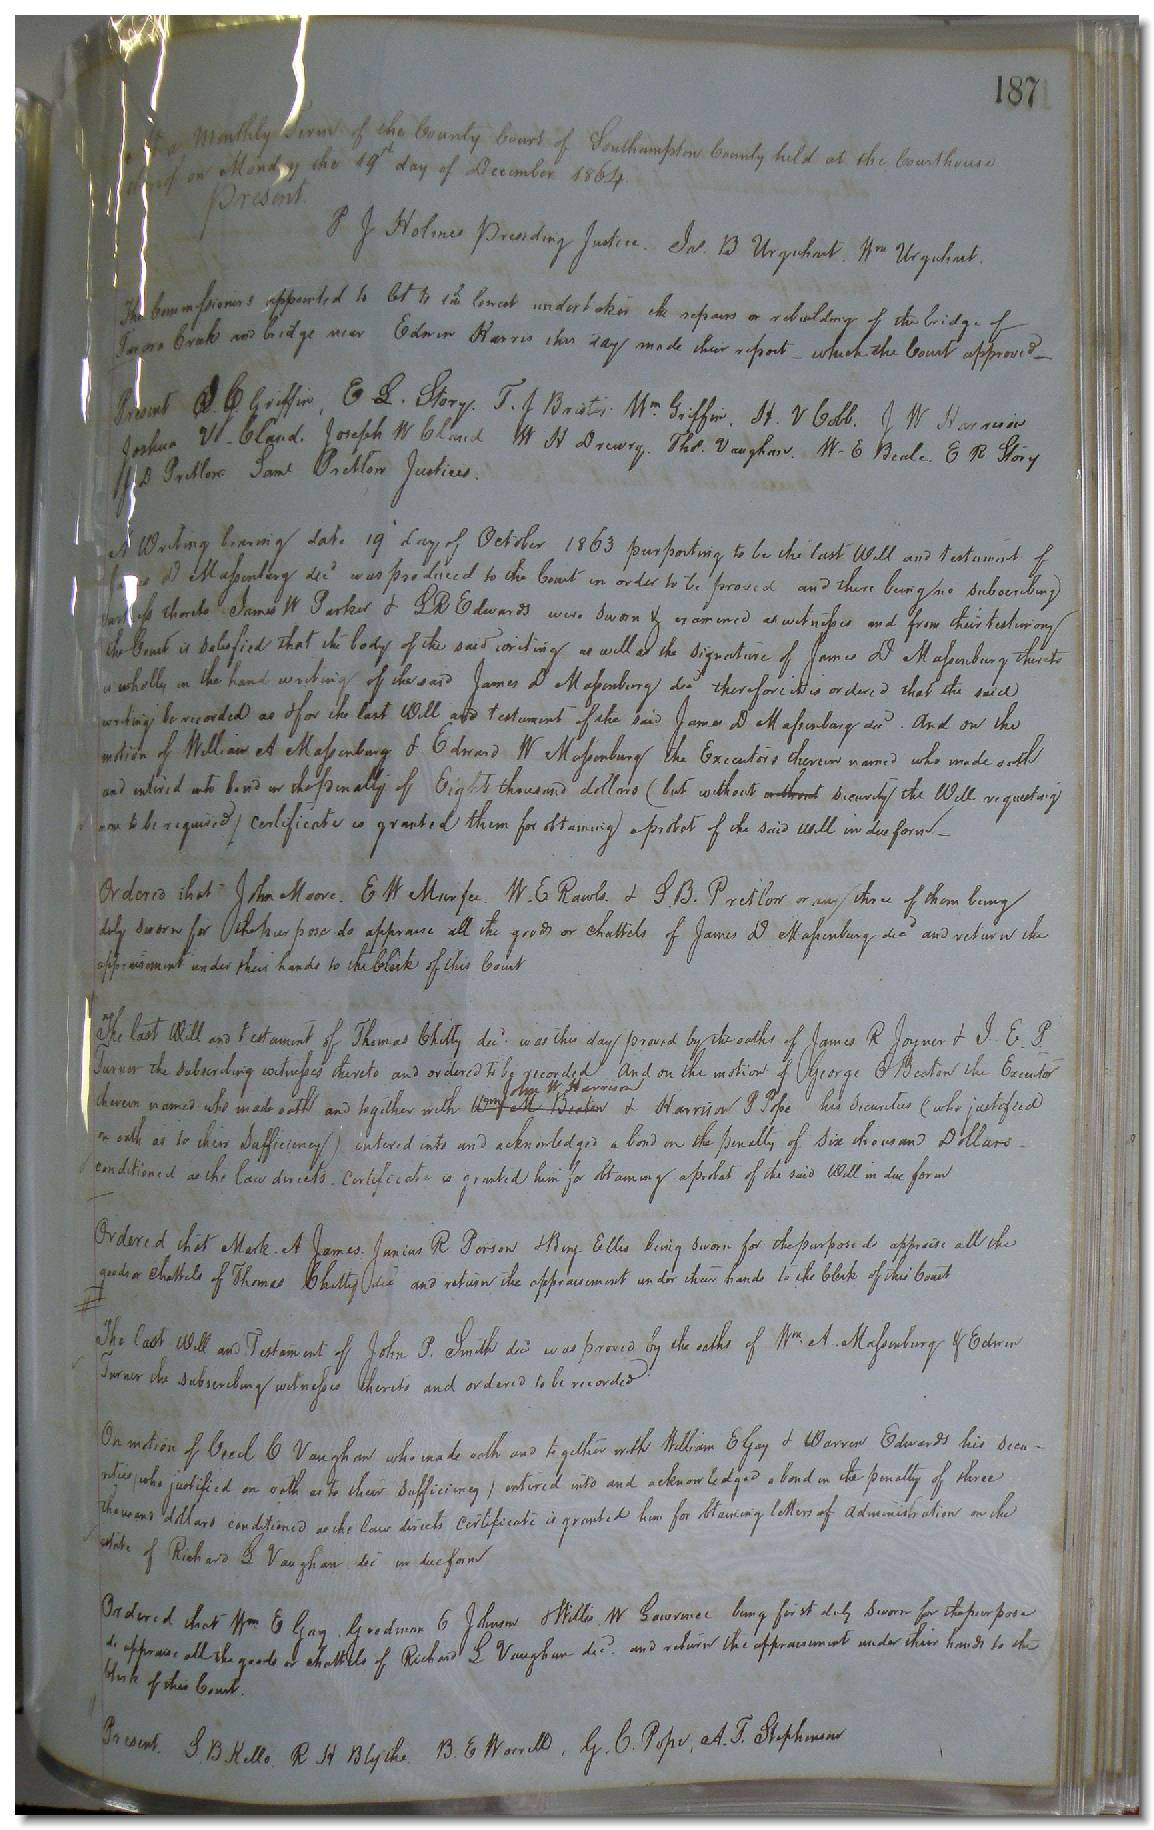 187
At a Monthly Term of the County Court of Southampton County held at the Courthouse
thereof on Monday the 19th day of December 1864.
Present.
P J Holmes Presiding Justice. Jas. B Urquhart. Wm Urquhart.
The Commissioners appointed to let to the lowest undertaker the repairs or rebuilding of the bridge of
Creek and bridge near Edwin Harris this day made their report - which the Court approved -
Present J. C. Griffin, E L. Story. T. J Bristol. Wm. Griffin. H. V Cobb. J W Harrison
Joshua W. Claud. Joseph W Claud W H Drewry. Thos. Vaughan. W. E Beale. E R Story
J D Pretlow Saml Pretlow Justices.
A Writing bearing date 19th day of October 1863 purporting to be the last Will and testament of
James D Massenburg decd was produced to the Court in order to be proved and there being no subscribing
witness thereto James W Parker & L R Edwards were sworn & examined as witnesses and from their testimony
the Court is satisfied that the body of the said writing as well as the signature of James D Massenburg thereto
is wholly in the hand writing of the said James D Massenburg decd therefore it is ordered that the said
writing be recorded as & for the last Will and testament of the said James D Massenburg decd. And on the
motion of William A Massenburg & Edward W Massenburg the Executors therein named who made oath
and entered into bond in the penalty of Eight thousand dollars (but without without security the Will requesting
none to be required) certificate is granted them for obtaining a probat of the said will in due form -
Ordered that John Moore. E W Murfee. W. E Rawls. & S. B. Pretlow or any three of them being
duly sworn for the purpose do appraise all the goods or chattels of James D Massenburg decd and return the
appraisement under their hands to the Clerk of this Court
The last Will and testament of Thomas Chitty decd. was this day proved by the oaths of James R Joyner & J. E. P.
Turner the subscribing witnesses thereto and ordered to be recorded And on the motion of George Beaton the Executor
John W Harrison
therein named who made oath and together with Wm M Beaton & Harrison P Pope his securities (who justified
on oath as to their sufficiency) entered into and acknowledged a bond on the penalty of Six thousand Dollars -
conditioned as the law directs. certificate is granted him for obtaining a probat of the said Will in due form
Ordered that Mark. A James. Junius R Porson & Benj. Ellis being sworn for the purpose do appraise all the
goods or chattels of Thomas Chitty decd and return the appraisement under their hands to the Clerk of this Court
The last Will and Testament of John P. Smith decd was proved by the oaths of Wm. A. Massenburg & Edwin
Turner the subscribing witnesses thereto and ordered to be recorded
On motion of Cecil C Vaughan who made oath and together with William E Gay & Warren Edwards his secu-
rities, (who justified on oath as to their sufficiency) entered into and acknowledged a bond in the penalty of three
thousand dollars conditioned as the law directs certificate is granted him for obtaining letters of administration on the
estate of Richard L Vaughan decd in due form
Ordered that Wm E Gay. Goodman C Johnson & Willis W Lawrence being first duly sworn for the purpose
do appraise all the goods or chattels of Richard L Vaughan decd. and return the appraisement under their hands to the
Clerk of this Court.
Present. S. B Kello. R H Blythe. B. E Worrell, G. C. Pope, A. T. Stephenson